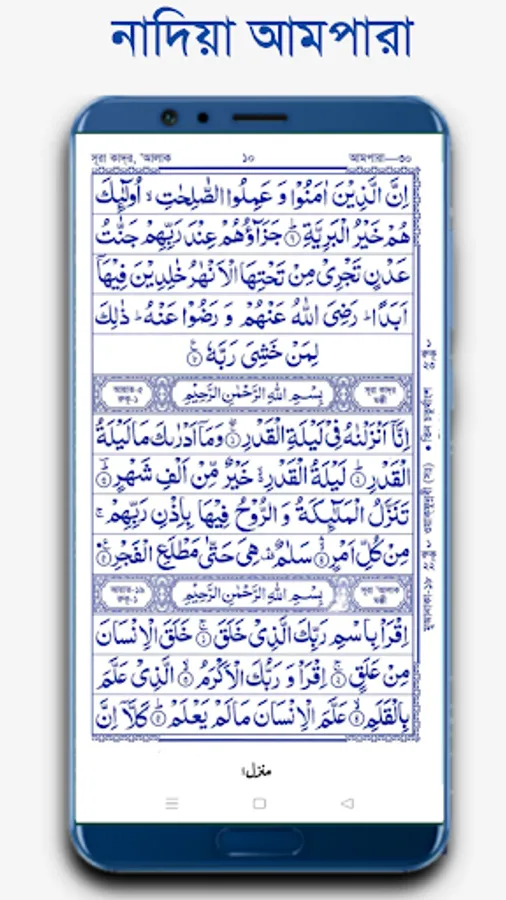 নাদিয়া আমপারা
সূরা কাদ্‌র, 'আলাক
১০
আমপারা—৩০
اِنَّ الَّذِيْنَ اٰمَنُوْا وَ عَمِلُوا الصّٰلِحٰتِ ۙ اُولٰٓئِكَ
هُمْ خَيْرُ الْبَرِيَّةِ ؕ جَزَآؤُهُمْ عِنْدَ رَبِّهِمْ جَنّٰتُ
عَدْنٍ تَجْرِىْ مِنْ تَحْتِهَا الْاَنْهٰرُ خٰلِدِيْنَ فِيْهَاۤ
اَبَدًا ؕ رَضِىَ اللّٰهُ عَنْهُمْ وَ رَضُوْا عَنْهُ ؕ ذٰلِكَ
لِمَنْ خَشِىَ رَبَّهٗ
আয়াত-৫
রুকূ-১
بِسْمِ اللّٰهِ الرَّحْمٰنِ الرَّحِيْمِ
সূরা কাদ্‌র
মক্কী
اِنَّاۤ اَنْزَلْنٰهُ فِىْ لَيْلَةِ الْقَدْرِ وَمَاۤ اَدْرٰىكَ مَا لَيْلَةُ
الْقَدْرِ ؕ لَيْلَةُ الْقَدْرِ ۙ خَيْرٌ مِّنْ اَلْفِ شَهْرٍ ؕ
تَنَزَّلُ الْمَلٰٓئِكَةُ وَ الرُّوْحُ فِيْهَا بِاِذْنِ رَبِّهِمْ ۚ
مِنْ كُلِّ اَمْرٍ سَلٰمٌ ۛ هِىَ حَتّٰى مَطْلَعِ الْفَجْرِ
আয়াত-১৯
রুকূ-১
بِسْمِ اللّٰهِ الرَّحْمٰنِ الرَّحِيْمِ
সূরা 'আলাক
মক্কী
اِقْرَاْ بِاسْمِ رَبِّكَ الَّذِىْ خَلَقَ ۚ خَلَقَ الْاِنْسَانَ
مِنْ عَلَقٍ ۚ اِقْرَاْ وَ رَبُّكَ الْاَكْرَمُ ۙ الَّذِىْ عَلَّمَ
بِالْقَلَمِ ۙ عَلَّمَ الْاِنْسَانَ مَا لَمْ يَعْلَمْ ؕ كَلَّاۤ اِنَّ
منزل